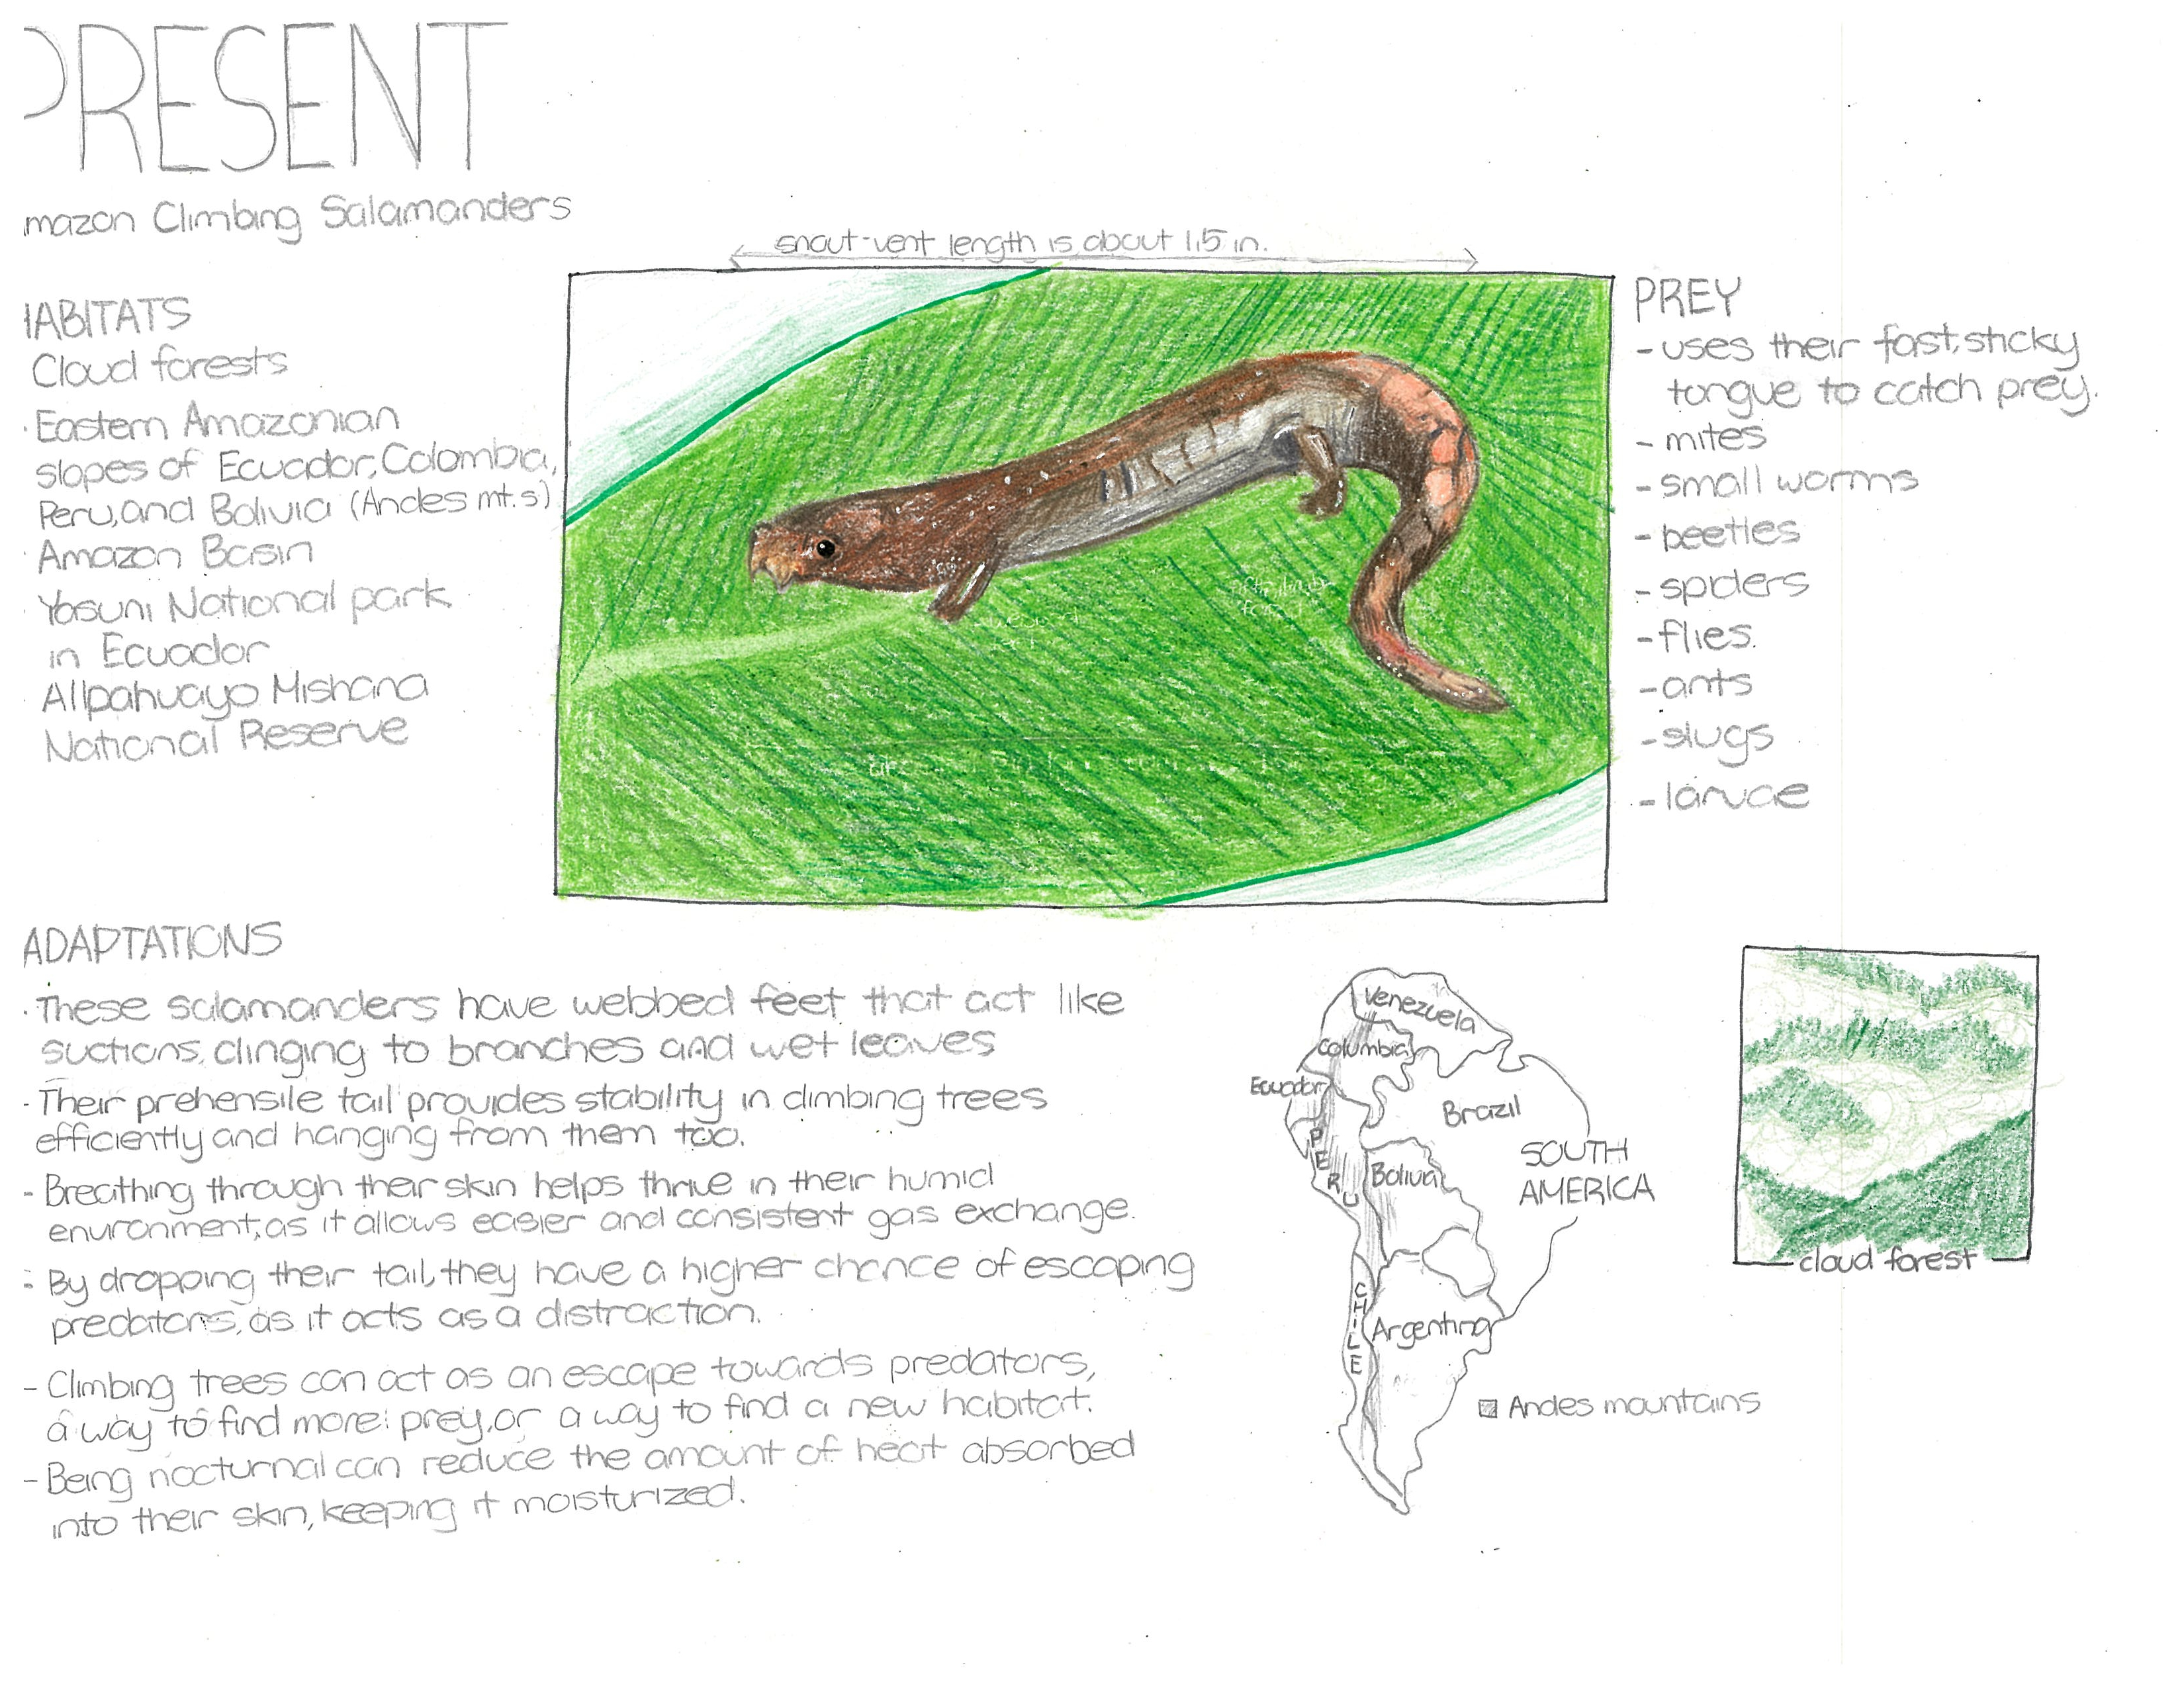 PRESENT
mazon Climbing Salamanders
snout-vent length is about 1.5 in.
HABITATS
Cloud forests
· Eastern Amazonian
slopes of Ecuador, Colombia,
Peru, and Bolivia (Andes mt.s)
· Amazon Basin
· Yasuni National park
in Ecuador
· Allpahuayo Mishana
National Reserve
PREY
- uses their fast, sticky
tongue to catch prey.
- mites
- small worms
- beetles
- spiders
- flies.
- ants
- slugs
- larvae
ADAPTATIONS
· These salamanders have webbed feet that act like
suctions, clinging to branches and wet leaves
- Their prehensile tail provides stability in climbing trees
efficiently and hanging from them too.
- Breathing through their skin helps thrive in their humid
environment, as it allows easier and consistent gas exchange.
- By dropping their tail, they have a higher chance of escaping
predators, as it acts as a distraction.
- Climbing trees can act as an escape towards predators,
a way to find more prey, or a way to find a new habitat.
- Being nocturnal can reduce the amount of heat absorbed
into their skin, keeping it moisturized.
Venezuela
Columbia
Ecuador
Brazil
PERU
Bolivia
SOUTH
AMERICA
CHILE
Argentina
Andes mountains
cloud forest